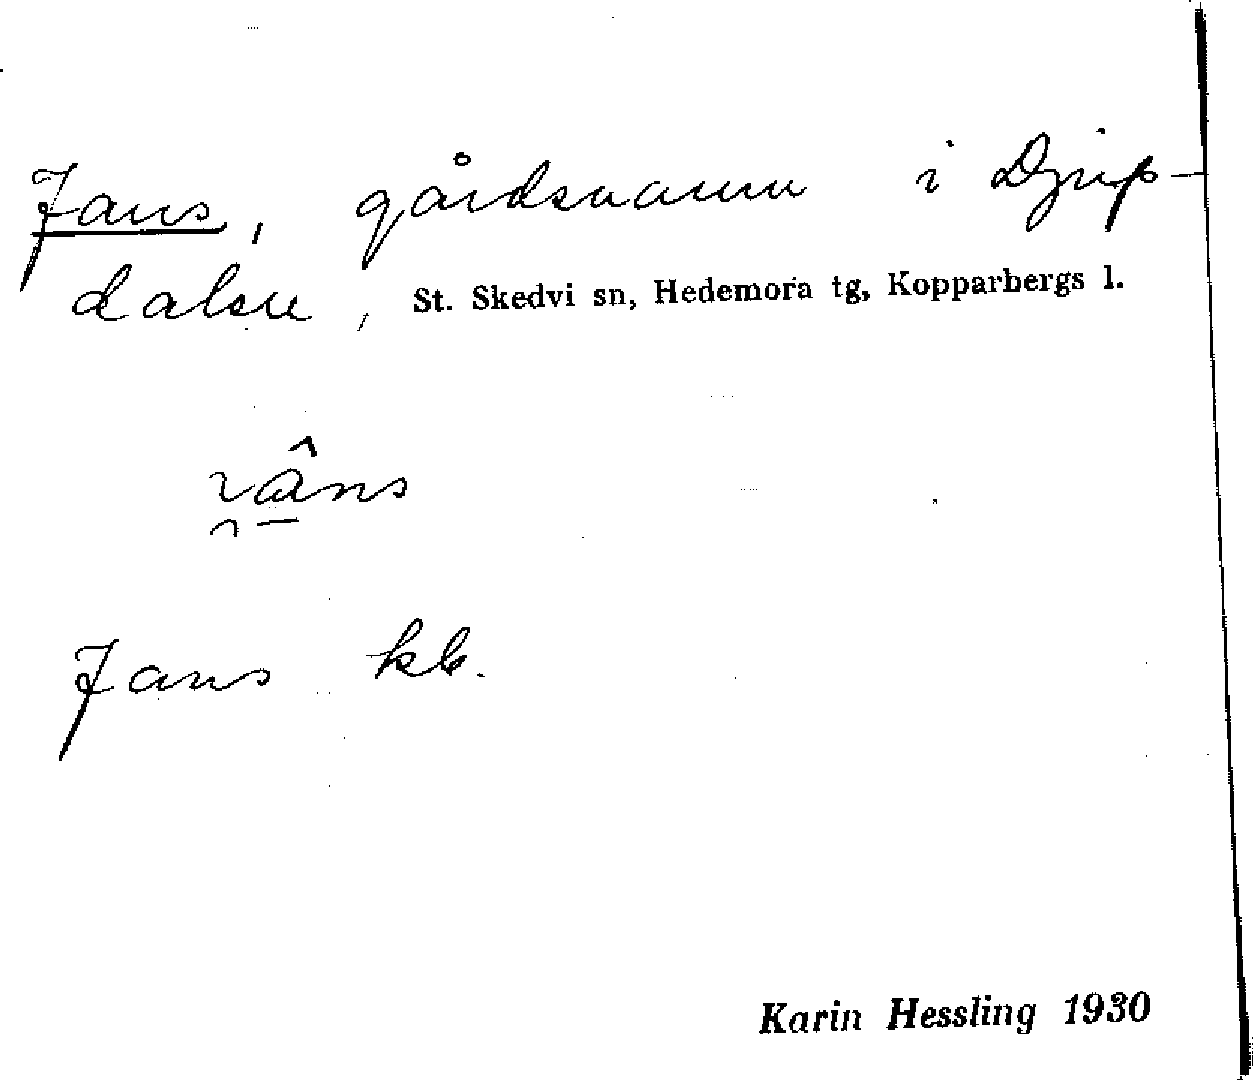 Jans, gårdsnamn i Djup-
dalen, St. Skedvi sn, Hedemora tg, Kopparbergs l.
Jans kb.
Karin Hessling 1930